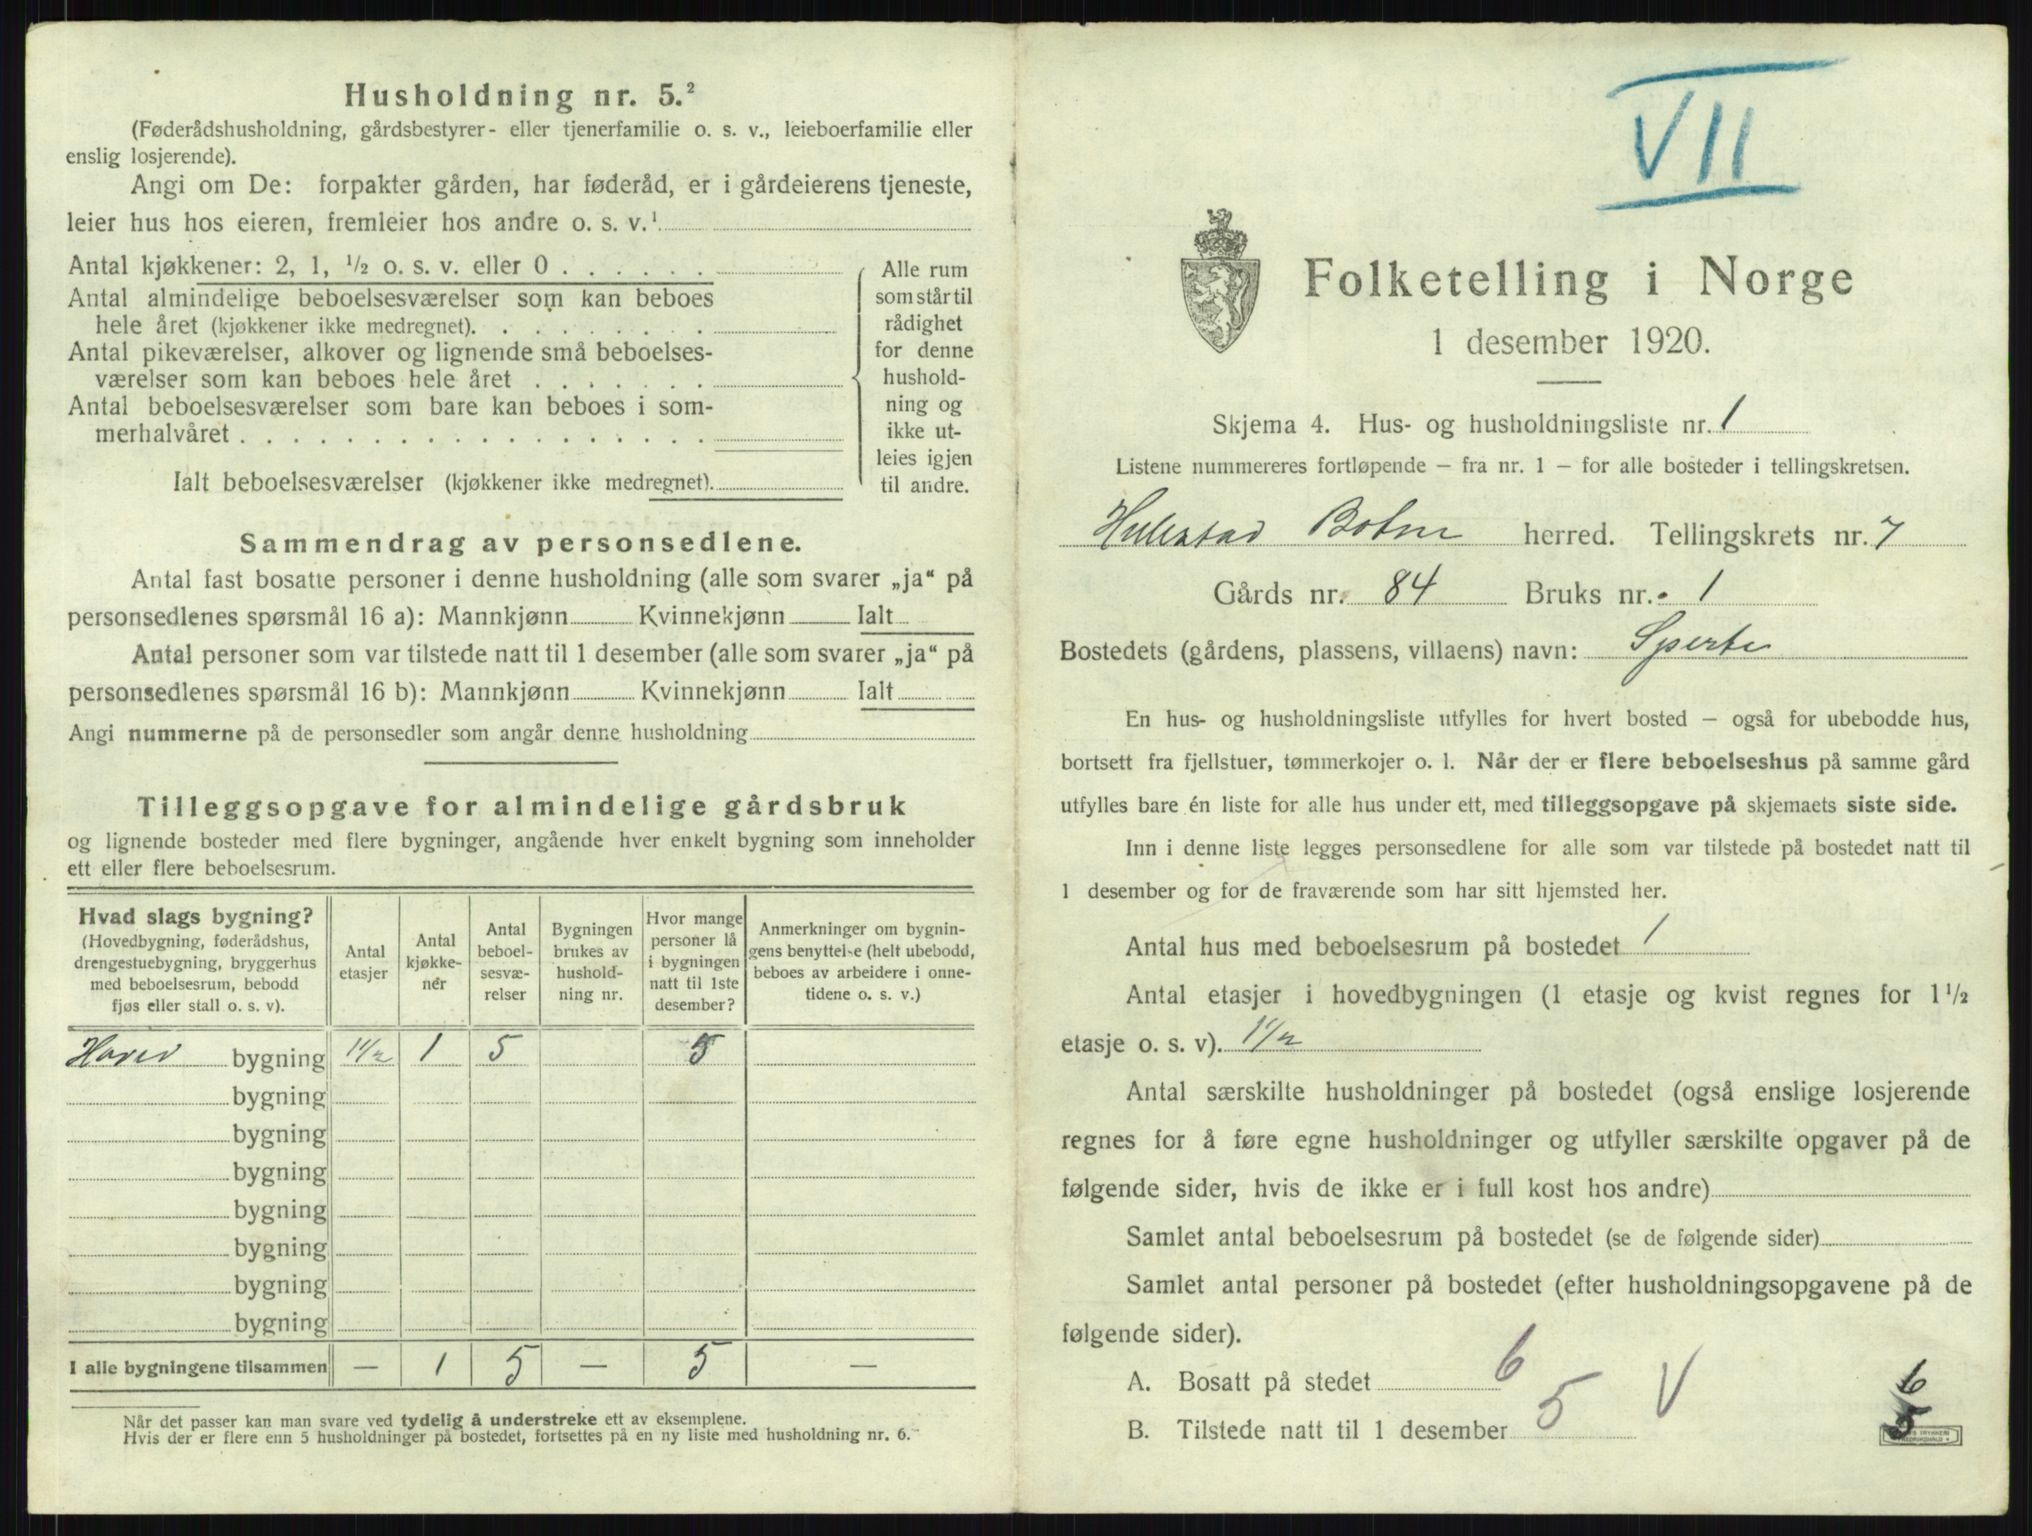 Husholdning nr. 5.²
(Føderådshusholdning, gårdsbestyrer- eller tjenerfamilie o. s. v., leieboerfamilie eller
enslig losjerende).
Angi om De: forpakter gården, har føderåd, er i gårdeierens tjeneste,
leier hus hos eieren, fremleier hos andre o. s. v.¹
Antal kjøkkener: 2, 1, 1/2 o. s. v. eller 0 . . . . . .
Antal almindelige beboelsesværelser som kan beboes
hele året (kjøkkener ikke medregnet). . . . . . . . .
Antal pikeværelser, alkover og lignende små beboelses-
værelser som kan beboes hele året . . . . . . .
Antal beboelsesværelser som bare kan beboes i som-
merhalvåret . . . . . . . . . . . . . . . . . .
Ialt beboelsesværelser (kjøkkener ikke medregnet).
Alle rum
som står til
rådighet
for denne
hushold-
ning og
ikke ut-
leies igjen
til andre.
Sammendrag av personsedlene.
Antal fast bosatte personer i denne husholdning (alle som svarer „ja“ på
personsedlenes spørsmål 16 a): Mannkjønn Kvinnekjønn Ialt
Antal personer som var tilstede natt til 1 desember (alle som svarer „ja“ på
personsedlenes spørsmål 16 b): Mannkjønn Kvinnekjønn Ialt
Angi nummerne på de personsedler som angår denne husholdning
Tilleggsopgave for almindelige gårdsbruk
og lignende bosteder med flere bygninger, angående hver enkelt bygning som inneholder
ett eller flere beboelsesrum.
Hvad slags bygning?
(Hovedbygning, føderådshus,
drengestuebygning, bryggerhus
med beboelsesrum, bebodd
fjøs eller stall o. s. v).
Antal
etasjer
Antal
kjøkke-
ner
Antal
beboel-
sesvæ-
relser
Bygningen
brukes av
hushold-
ning nr.
Hvor mange
personer lå
i bygningen
natt til 1ste
desember?
Anmerkninger om bygnin-
gens benyttelse (helt ubebodd,
beboes av arbeidere i onne-
tidene o. s. v.)
Hoved bygning 1 1/2 1 5 5
bygning
bygning
bygning
bygning
bygning
bygning
bygning
I alle bygningene tilsammen — 1 5 — 5 —
Når det passer kan man svare ved tydelig å understreke ett av eksemplene.
Hvis der er flere enn 5 husholdninger på bostedet, fortsettes på en ny liste med husholdning nr. 6.
VII
Folketelling i Norge
1 desember 1920.
Skjema 4. Hus- og husholdningsliste nr. 1
Listene nummereres fortløpende — fra nr. 1 — for alle bosteder i tellingskretsen.
Hillestad Botne herred. Tellingskrets nr. 7
Gårds nr. 84 Bruks nr. 1
Bostedets (gårdens, plassens, villaens) navn:
En hus- og husholdningsliste utfylles for hvert bosted — også for ubebodde hus,
bortsett fra fjellstuer, tømmerkojer o. l. Når der er flere beboelseshus på samme gård
utfylles bare én liste for alle hus under ett, med tilleggsopgave på skjemaets siste side.
Inn i denne liste legges personsedlene for alle som var tilstede på bostedet natt til
1 desember og for de fraværende som har sitt hjemsted her.
Antal hus med beboelsesrum på bostedet 1
Antal etasjer i hovedbygningen (1 etasje og kvist regnes for 1 1/2
etasje o. s. v). 1 1/2
Antal særskilte husholdninger på bostedet (også enslige losjerende
regnes for å føre egne husholdninger og utfyller særskilte opgaver på de
følgende sider, hvis de ikke er i full kost hos andre)
Samlet antal beboelsesrum på bostedet (se de følgende sider)
Samlet antal personer på bostedet (efter husholdningsopgavene på de
følgende sider).
A. Bosatt på stedet 6
B. Tilstede natt til 1 desember 5 V
6
5